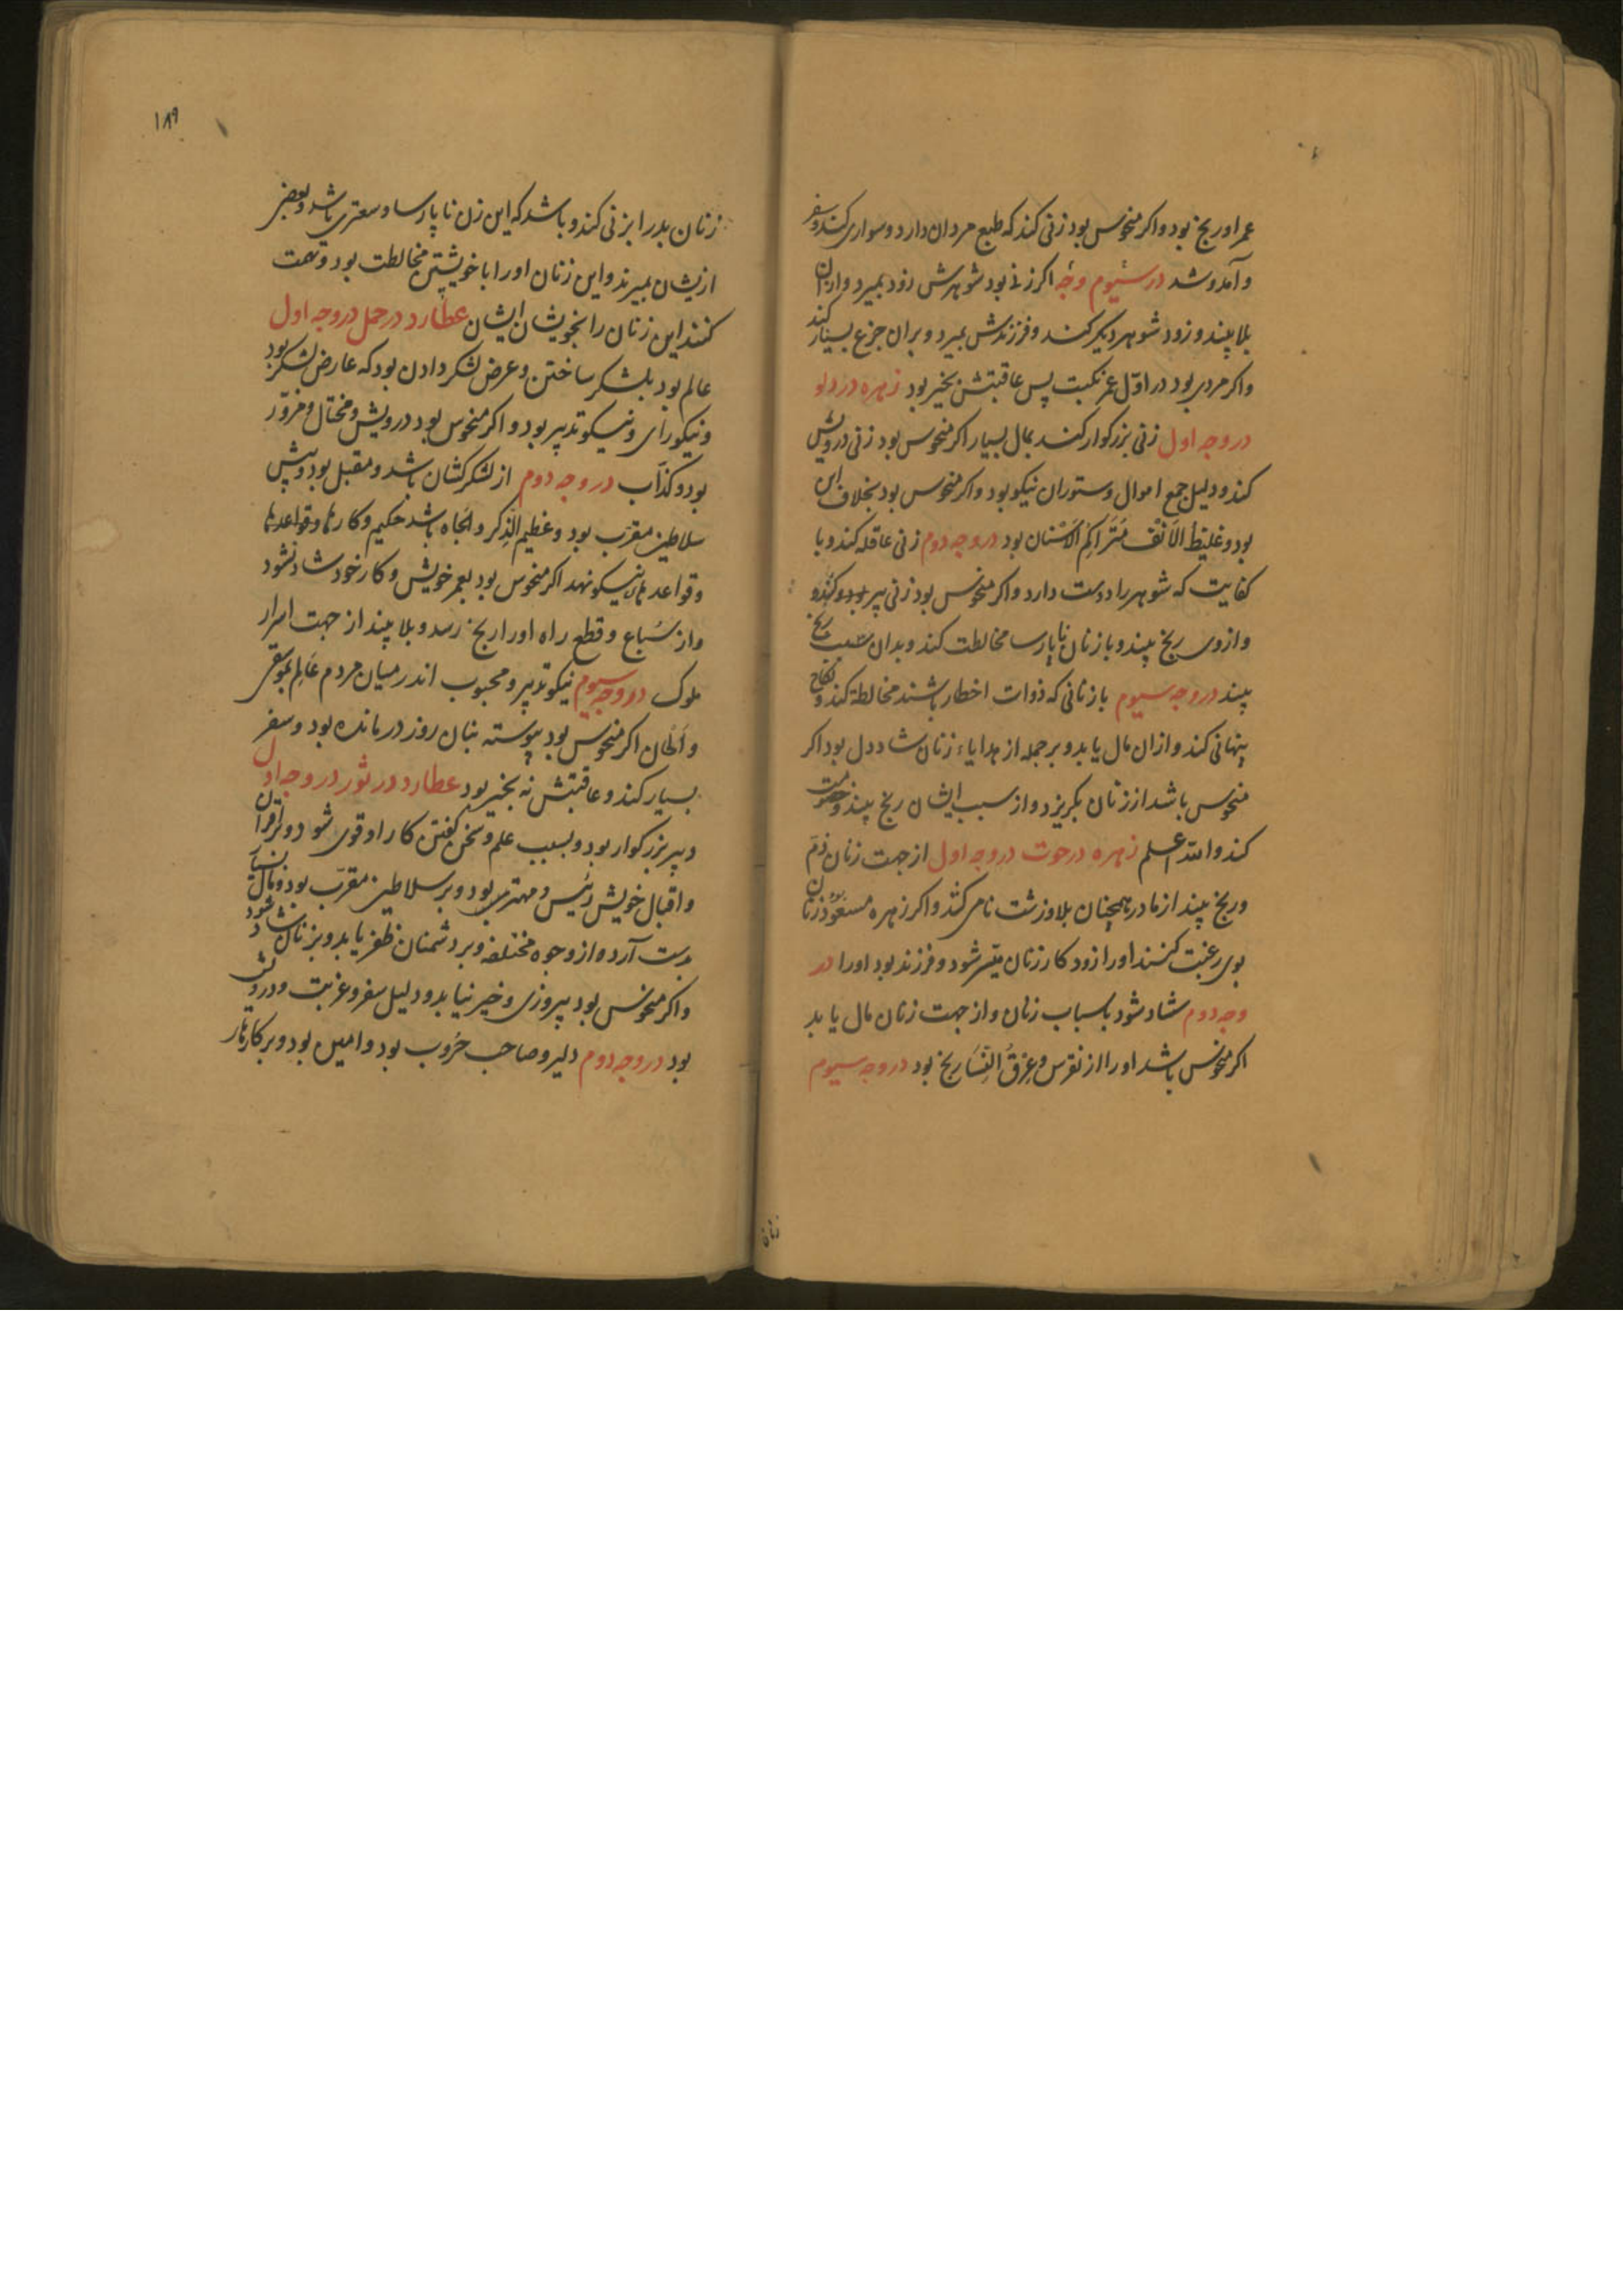 عمر او رنج بود و اکر منحوس بود زنی کند که طبع مردان دارد و سواری کند و سفر
و آمد و شد در سیوم وجه اکر زنی بود شوهرش زود بمیرد و از آن
بلا بیند و زود شوهر دیکر کند و فرزندش بمیرد و بران جزع بسیار کند
و اکر مردی بود در اوّل عمر نکبت پس عاقبتش بخیر بود زهره در دلو
در وجه اول زنی بزرکوار کند بمال بسیار اکر منحوس بود زنی درویش
کند و دلیل جمع اموال و ستوران نیکو بود و اکر منحوس بود بخلاف این
بود و غلیظ الاَنْف مُتَرَاکِم الاَسْنان بود در وجه دوم زنی عاقله کند و با
کفایت که شوهر را دوست دارد و اکر منحوس بود زنی پیر کند و
و ازوی رنج بیند و با زنان ناپارسا مخالطت کند و بدان سبب رنج
بیند در وجه سیوم با زنانی که ذوات اخطار باشند مخالطة کند و نکاح
پنهانی کند و ازان مال یابد و بر جمله از هدایاء زنان شاد دل بود اکر
منحوس باشد از زنان بکریزد و از سبب ایشان رنج بیند و خصومت
کند والله اعلم زهره در حوت در وجه اول از جهت زنان ذمّ
و رنج بیند از مادر همچنان بلا و زشت نامی کشد و اکر زهره مسعود بود زنان
بوی رغبت کنند او را زود کار زنان میّسر شود و فرزند بود او را در
وجه دوم شاد شود باسباب زنان و از جهت زنان مال یابد
اکر منحوس باشد او را از نقرس و عِرْقُ النِّسَا رنج بود در وجه سیوم
زنان
۱۸۹
زنان بد را بزنی کند و باشد که این زن ناپارسا و سعتری باشد و بعضی
ازیشان بمیرند و این زنان او را با خویشتن مخالطت بود و تهمت
کنند این زنان را بخویشان ایشان عطارد در حمل در وجه اول
عالم بود بلشکر ساختن و عرض لشکر دادن بود که عارض لشکر بود
و نیکو رأی و نیکو تدبیر بود و اکر منحوس بود درویش و محتال و مزوّر
بود و کذّاب در وجه دوم از لشکر کشان باشد و مقبل بود و پیش
سلاطین مقرّب بود و عظیم الذِکر و الجاه باشد حکیم و کارها و قواعدها
و قواعدهاء نیکو نهد اکر منحوس بود بعمر خویش و کار خود شاد نشود
و از سُباع و قطع راه او را رنج رسد و بلا بیند از جهت اسرار
ملوک در وجه سیوم نیکو تدبیر و محبوب اندر میان مردم عَالِم بموسقی
و اَلْحان اکر منحوس بود پیوسته بنان روز درمانده بود و سفر
بسیار کند و عاقبتش نه بخیر بود عطارد در ثور در وجه اول
دبیر بزرکوار بود و بسبب علم و سخن کفتن کار او قوی شود و بر اقران
و اقبال خویش رئیس و مهتر بود و بر سلاطین مقرّب بود و مال بسیار
بدست آرد و از وجوه مختلفه و بر دشمنان ظفر یابد و بزنان شاد شود
و اکر منحوس بود پیروزی و خیر نیابد و دلیل سفر و غربت و درویش
بود در وجه دوم دلیر و صاحب حُروب بود و امین بود و بر کارهاء